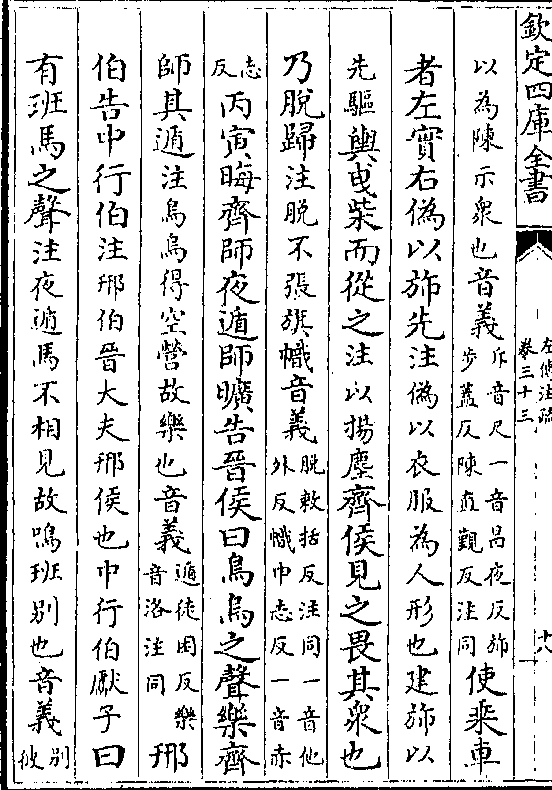 欽定四庫全書
左傳注疏
卷三十三
十八
以為陳示衆也音義斥音尺一音昌夜反斾
步蓋反陳直覲反注同使乘車
者左實右偽以斾先注偽以衣服為人形也建斾以
先驅輿曳柴而從之注以揚塵齊侯見之畏其衆也
乃脫歸注脫不張旗幟音義脫敕括反注同一音他
外反幟巾志反一音赤
志
反丙寅晦齊師夜遁師曠告晉侯曰鳥烏之聲樂齊
師其遁注鳥烏得空營故樂也音義遁徒困反樂
音洛注同邢
伯告中行伯注邢伯晉大夫邢侯也中行伯獻子曰
有班馬之聲注夜遁馬不相見故鳴班别也音義别
彼